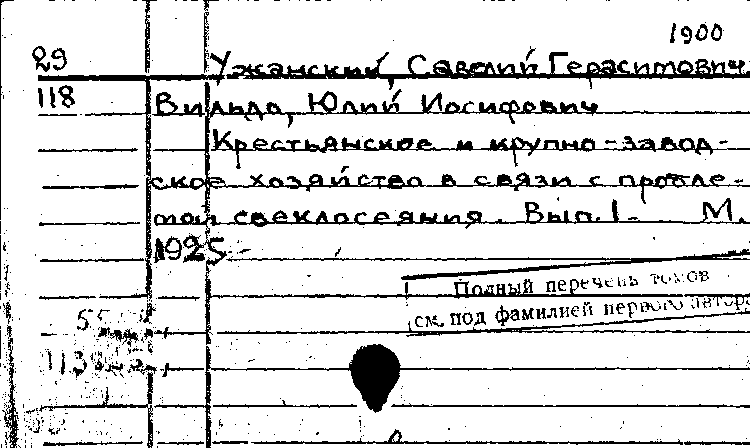 1900
29 Ужанский, Савелий Герасимович
118 Вильдо, Юлий Иосифович
Крестьянское и крупно-завод-
ское хозяйство в связи с пробле-
мой свеклосеяния. Вып. 1. М.
1925
Полный перечень томов
см. под фамилией первого автора
55
113